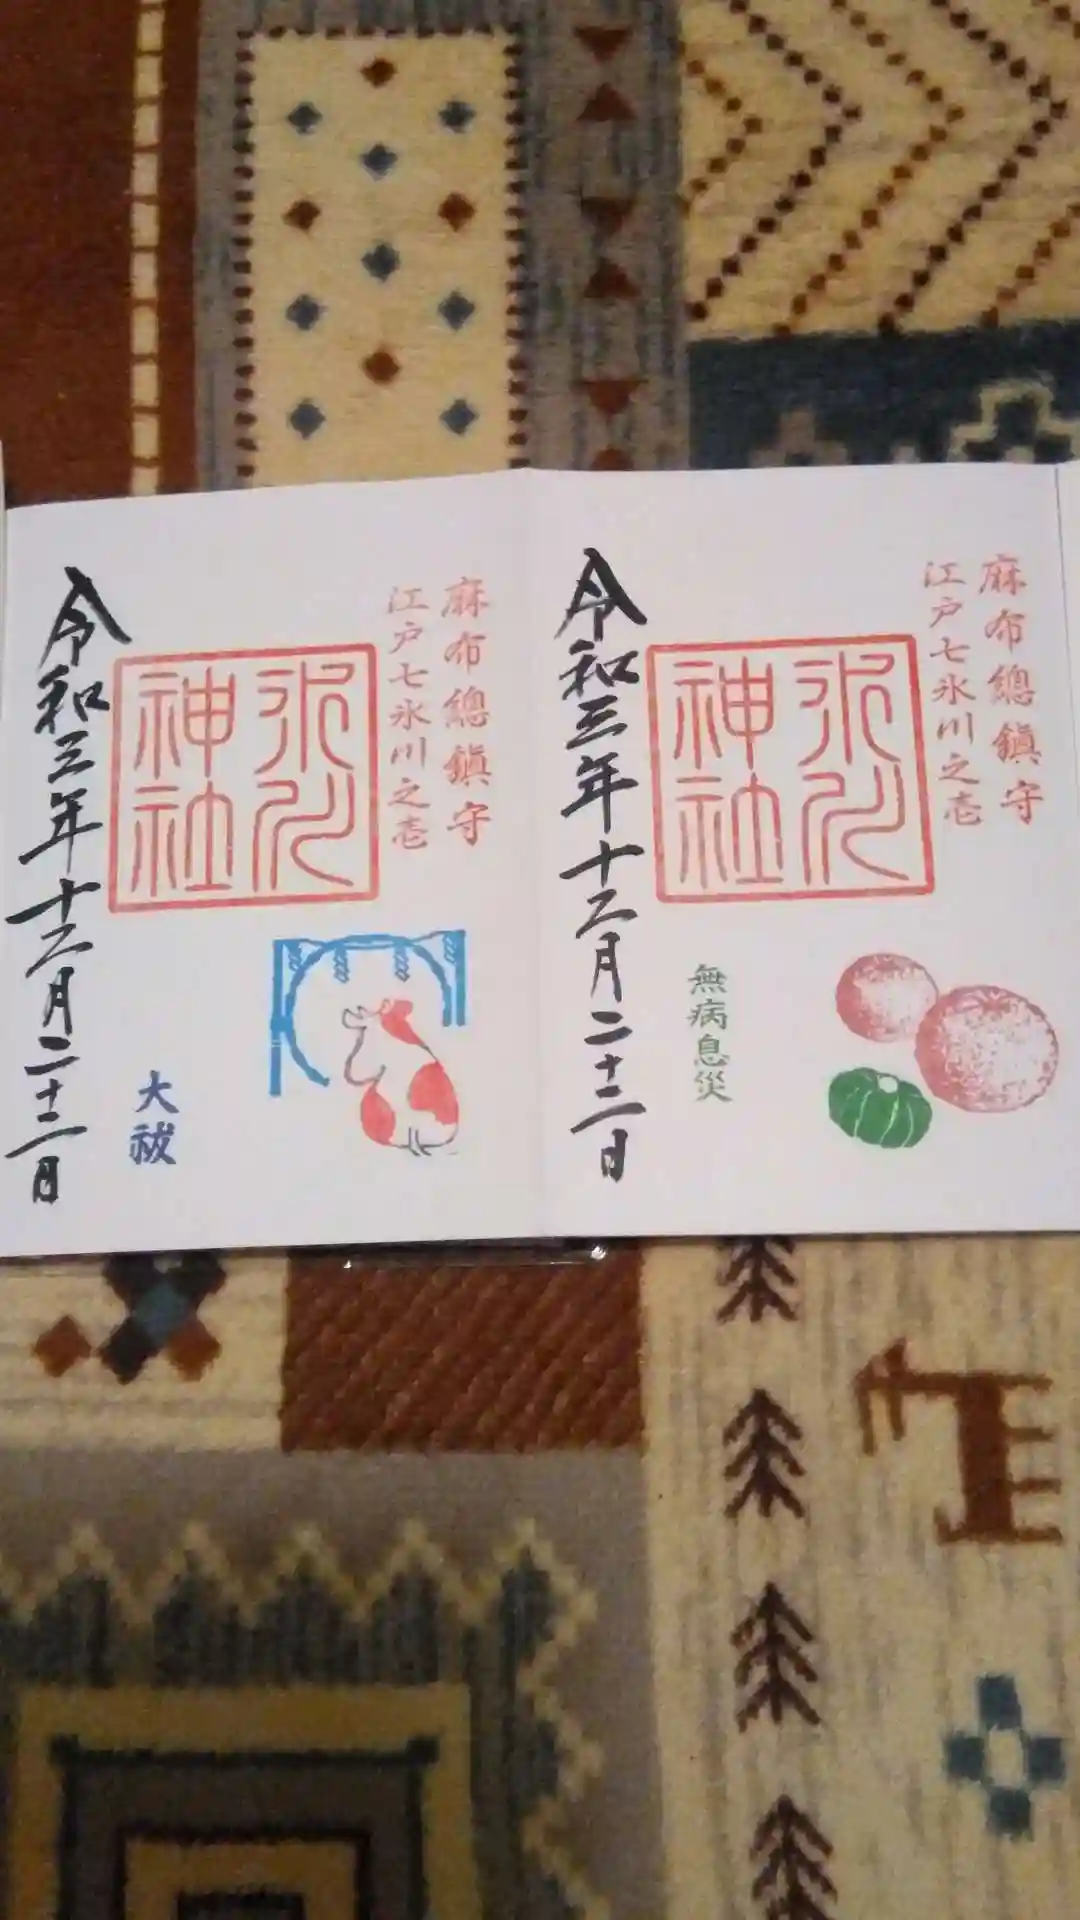 麻布總鎮守
江戸七氷川之壱
氷川
神社
無病息災
令和三年十二月二十二日
麻布總鎮守
江戸七氷川之壱
氷川
神社
大祓
令和三年十二月二十二日